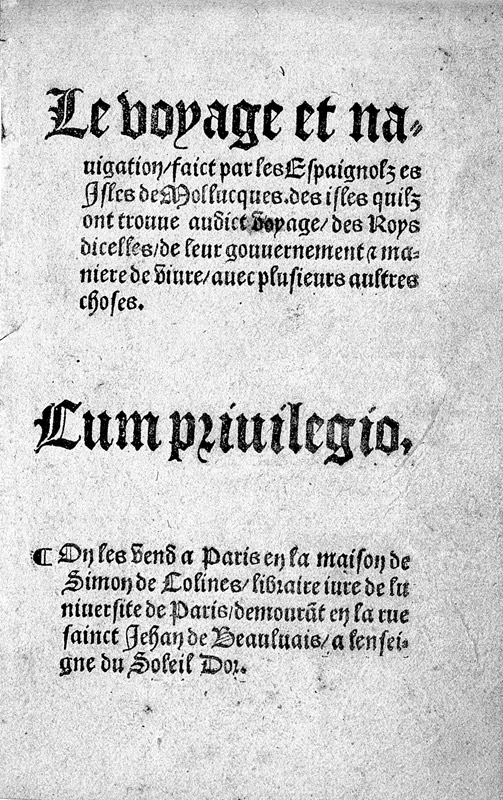 Le voyage et na-
uigation/faict par les Espaignolz es
Isles de Mollucques.des isles quilz
ont trouue audict voyage/des Roys
dicelles/de leur gouuernement & ma-
niere de viure/auec plusieurs aultres
choses.
Cum priuilegio.
¶ On les vend a Paris en la maison de
Simon de Colines/libraire iure de lu
niuersite de Paris/demourāt en la rue
sainct Jehan de Beauluais/a lensei-
gne du Soleil Dor.